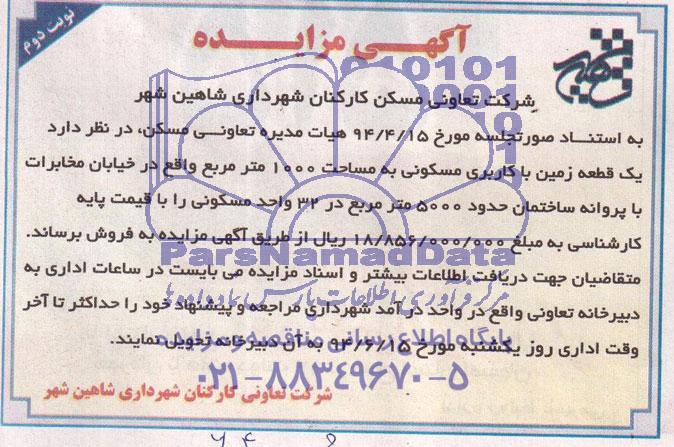 نوبت دوم
آگهـی مزایـده
شرکت تعاونی مسکن کارکنان شهرداری شاهین شهر
به استنـاد صورتجلسه مورخ ۹۴/۴/۱۵ هیات مدیره تعاونـی مسکن، در نظر دارد
یک قطعه زمین با کاربری مسکونی به مساحت ۱۰۰۰ متر مربع واقع در خیابان مخابرات
با پروانه ساختمان حدود ۵۰۰۰ متر مربع در ۳۲ واحد مسکونی را با قیمت پایه
کارشناسی به مبلغ ۱۸/۸۵۶/۰۰۰/۰۰۰ ریال از طریق آگهی مزایده به فروش برساند.
متقاضیان جهت دریافت اطلاعات بیشتر و اسناد مزایده می بایست در ساعات اداری به
دبیرخانه تعاونی واقع در واحد درآمد شهرداری مراجعه و پیشنهاد خود را حداکثر تا آخر
وقت اداری روز یکشنبه مورخ ۹۴/۶/۱۵ به آن دبیرخانه تحویل نمایند.
شرکت تعاونی کارکنان شهرداری شاهین شهر
ParsNamadData
مرکز فرآوری اطلاعات پارس نماد داده ها
پایگاه اطلاع رسانی مناقصه و مزایده
۰۲۱-۸۸۳۴۹۶۷۰-۵